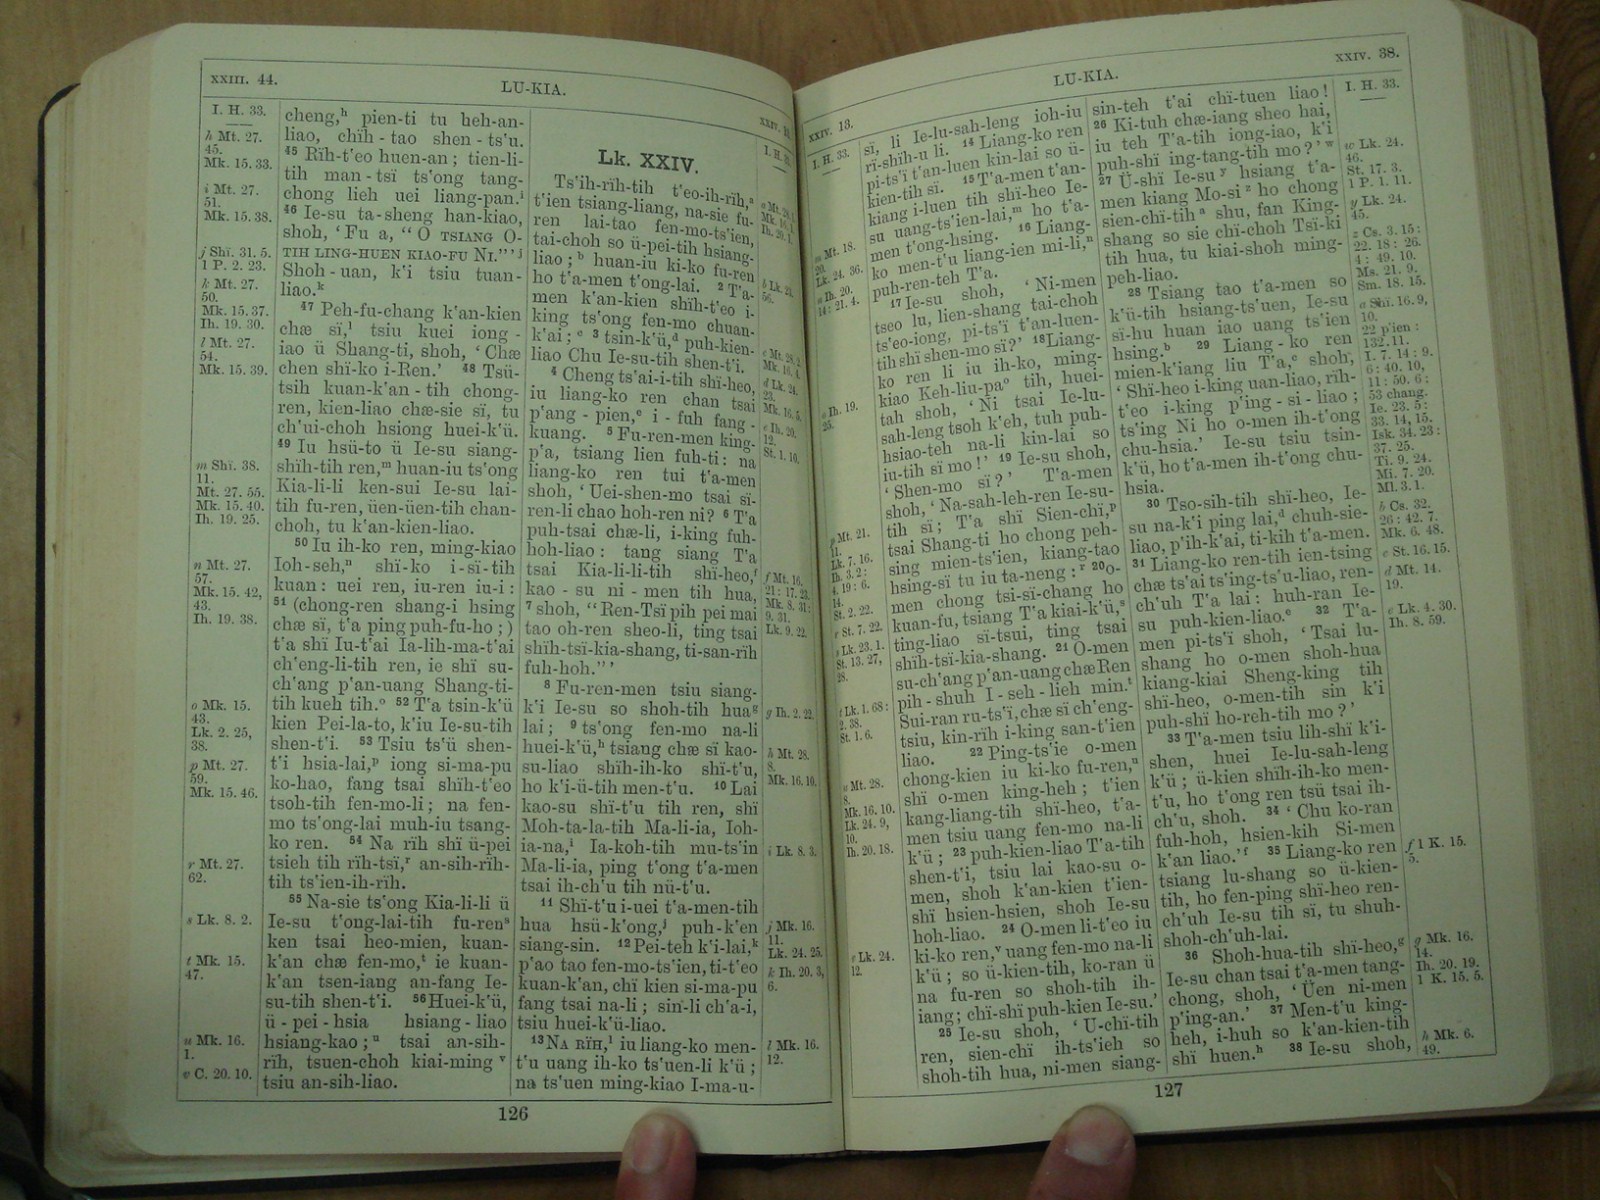 XXIII. 44.
LU-KIA.
I. H. 33.
h Mt. 27.
45.
Mk. 15. 33.
i Mt. 27.
51.
Mk. 15. 38.
j Shï. 31. 5.
1 P. 2. 23.
k Mt. 27.
50.
Mk. 15. 37.
Ih. 19. 30.
l Mt. 27.
54.
Mk. 15. 39.
m Shï. 38.
11.
Mt. 27. 55.
Mk. 15. 40.
Ih. 19. 25.
n Mt. 27.
57.
Mk. 15. 42,
43.
Ih. 19. 38.
o Mk. 15.
43.
Lk. 2. 25,
38.
p Mt. 27.
59.
Mk. 15. 46.
r Mt. 27.
62.
s Lk. 8. 2.
t Mk. 15.
47.
u Mk. 16.
1.
v C. 20. 10.
cheng,h pien-ti tu heh-an-
liao, chïh-tao shen-ts'u.
45 Rïh-t'eo huen-an; tien-li-
tih man-tsï ts'ong tang-
chong lieh uei liang-pan.i
46 Ie-su ta-sheng han-kiao,
shoh, ‘Fu a, “O TSIANG O-
TIH LING-HUEN KIAO-FU NI.”’j
Shoh-uan, k'i tsiu tuan-
liao.k
47 Peh-fu-chang k'an-kien
chæ sï,l tsiu kuei iong-
iao ü Shang-ti, shoh, ‘Chæ
chen shï-ko i-Ren.’ 48 Tsü-
tsih kuan-k'an-tih chong-
ren, kien-liao chæ-sie sï, tu
ch'ui-choh hsiong huei-k'ü.
49 Iu hsü-to ü Ie-su siang-
shïh-tih ren,m huan-iu ts'ong
Kia-li-li ken-sui Ie-su lai-
tih fu-ren, üen-üen-tih chan-
choh, tu k'an-kien-liao.
50 Iu ih-ko ren, ming-kiao
Ioh-seh,n shï-ko i-sï-tih
kuan: uei ren, iu-ren iu-i:
51 (chong-ren shang-i hsing
chæ sï, t'a ping puh-fu-ho;)
t'a shï Iu-t'ai Ia-lih-ma-t'ai
ch'eng-li-tih ren, ie shï su-
ch'ang p'an-uang Shang-ti-
tih kueh tih.o 52 T'a tsin-k'ü
kien Pei-la-to, k'iu Ie-su-tih
shen-t'i. 53 Tsiu ts'ü shen-
t'i hsia-lai,p iong si-ma-pu
ko-hao, fang tsai shïh-t'eo
tsoh-tih fen-mo-li; na fen-
mo ts'ong-lai muh-iu tsang-
ko ren. 54 Na rïh shï ü-pei
tsieh tih rïh-tsï,r an-sih-rïh-
tih ts'ien-ih-rïh.
55 Na-sie ts'ong Kia-li-li ü
Ie-su t'ong-lai-tih fu-rens
ken tsai heo-mien, kuan-
k'an chæ fen-mo,t ie kuan-
k'an tsen-iang an-fang Ie-
su-tih shen-t'i. 56 Huei-k'ü,
ü-pei-hsia hsiang-liao
hsiang-kao;u tsai an-sih-
rïh, tsuen-choh kiai-ming v
tsiu an-sih-liao.
Lk. XXIV.
Ts'ih-rïh-tih t'eo-ih-rïh,a
t'ien tsiang-liang, na-sie fu-
ren lai-tao fen-mo-ts'ien,
tai-choh so ü-pei-tih hsiang-
liao;b huan-iu ki-ko fu-ren
ho t'a-men t'ong-lai. 2 T'a-
men k'an-kien shïh-t'eo i-
king ts'ong fen-mo chuan-
k'ai;c 3 tsin-k'ü,d puh-kien-
liao Chu Ie-su-tih shen-t'i.
4 Cheng ts'ai-i-tih shï-heo,
iu liang-ko ren chan tsai
p'ang-pien,e i-fuh fang-
kuang. 5 Fu-ren-men king-
p'a, tsiang lien fuh-ti: na
liang-ko ren tui t'a-men
shoh, ‘Uei-shen-mo tsai sï-
ren-li chao hoh-ren ni? 6 T'a
puh-tsai chæ-li, i-king fuh-
hoh-liao: tang siang T'a
tsai Kia-li-li-tih shï-heo,f
kao-su ni-men tih hua,
7 shoh, “Ren-Tsï pih pei mai
tao oh-ren sheo-li, ting tsai
shïh-tsï-kia-shang, ti-san-rïh
fuh-hoh.”’
8 Fu-ren-men tsiu siang-
k'i Ie-su so shoh-tih huag
lai; 9 ts'ong fen-mo na-li
huei-k'ü,h tsiang chæ sï kao-
su-liao shïh-ih-ko shï-t'u,
ho k'i-ü-tih men-t'u. 10 Lai
kao-su shï-t'u tih ren, shï
Moh-ta-la-tih Ma-li-ia, Ioh-
ia-na,i Ia-koh-tih mu-ts'in
Ma-li-ia, ping t'ong t'a-men
tsai ih-ch'u tih nü-t'u.
11 Shï-t'u i-uei t'a-men-tih
hua hsü-k'ong,j puh-k'en
siang-sin. 12 Pei-teh k'i-lai,k
p'ao tao fen-mo-ts'ien, ti-t'eo
kuan-k'an, chï kien si-ma-pu
fang tsai na-li; sin-li ch'a-i,
tsiu huei-k'ü-liao.
13 NA RÏH,l iu liang-ko men-
t'u uang ih-ko ts'uen-li k'ü;
na ts'uen ming-kiao I-ma-u-
a Mt. 28. 1.
Mk. 16. 1.
Ih. 20. 1.
b Lk. 23.
56.
c Mt. 28. 2.
Mk. 16. 4.
d Lk. 24.
23.
Mk. 16. 5.
e Ih. 20.
12.
St. 1. 10.
f Mt. 16.
21: 17. 23.
Mk. 8. 31:
9. 31.
Lk. 9. 22.
g Ih. 2. 22.
h Mt. 28.
8.
Mk. 16. 10.
i Lk. 8. 3.
j Mk. 16.
11.
Lk. 24. 25.
k Ih. 20. 3,
6.
l Mk. 16.
12.
126
XXIV. 13.
LU-KIA.
XXIV. 38.
I. H. 33.
m Mt. 18.
20.
Lk. 24. 36.
n Ih. 20.
14: 21. 4.
o Ih. 19.
25.
p Mt. 21.
11.
Lk. 7. 16.
Ih. 3. 2:
4. 19: 6.
14.
St. 2. 22.
r St. 7. 22.
s Lk. 23. 1.
St. 13. 27,
28.
t Lk. 1. 68:
2. 38.
St. 1. 6.
u Mt. 28.
8.
Mk. 16. 10.
Lk. 24. 9,
10.
Ih. 20. 18.
v Lk. 24.
12.
sï, li Ie-lu-sah-leng ioh-iu
rï-shïh-u li. 14 Liang-ko ren
pi-ts'ï t'an-luen kin-lai so ü-
kien-tih sï. 15 T'a-men t'an-
kiang i-luen tih shï-heo Ie-
su uang-ts'ien-lai,m ho t'a-
men t'ong-hsing. 16 Liang-
ko men-t'u liang-ien mi-li,n
puh-ren-teh T'a.
17 Ie-su shoh, ‘Ni-men
tseo lu, lien-shang tai-choh
ts'eo-iong, pi-ts'ï t'an-luen-
tih shï shen-mo sï?’ 18 Liang-
ko ren li iu ih-ko, ming-
kiao Keh-liu-pao tih, huei-
tah shoh, ‘Ni tsai Ie-lu-
sah-leng tsoh k'eh, tuh puh-
hsiao-teh na-li kin-lai so
iu-tih sï mo!’ 19 Ie-su shoh,
‘Shen-mo sï?’ T'a-men
shoh, ‘Na-sah-leh-ren Ie-su-
tih sï; T'a shï Sien-chï,p
tsai Shang-ti ho chong peh-
sing mien-ts'ien, kiang-tao
hsing-sï tu iu ta-neng:r 20 o-
men chong tsi-sï-chang ho
kuan-fu, tsiang T'a kiai-k'ü,s
ting-liao sï-tsui, ting tsai
shïh-tsï-kia-shang. 21 O-men
su-ch'ang p'an-uang chæ Ren
pih-shuh I-seh-lieh min.t
Sui-ran ru-ts'ï, chæ sï ch'eng-
tsiu, kin-rïh i-king san-t'ien
liao. 22 Ping-ts'ie o-men
chong-kien iu ki-ko fu-ren,u
shï o-men king-heh; t'ien
kang-liang-tih shï-heo, t'a-
men tsiu uang fen-mo na-li
k'ü; 23 puh-kien-liao T'a-tih
shen-t'i, tsiu lai kao-su o-
men, shoh k'an-kien t'ien-
shï hsien-hsien, shoh Ie-su
hoh-liao. 24 O-men li-t'eo iu
ki-ko ren,v uang fen-mo na-li
k'ü; so ü-kien-tih, ko-ran ü
na fu-ren so shoh-tih ih-
iang; chï-shï puh-kien Ie-su.’
25 Ie-su shoh, ‘U-chï-tih
ren, sien-chï ih-ts'ieh so
shoh-tih hua, ni-men siang-
sin-teh t'ai chï-tuen liao!
26 Ki-tuh chæ-iang sheo hai,
iu teh T'a-tih iong-iao, k'i
puh-shï ing-tang-tih mo?’w
27 Ü-shï Ie-su y hsiang t'a-
men kiang Mo-si z ho chong
sien-chï-tih a shu, fan King-
shang so sie chï-choh Tsï-ki
tih hua, tu kiai-shoh ming-
peh-liao.
28 Tsiang tao t'a-men so
k'ü-tih hsiang-ts'uen, Ie-su
sï-hu huan iao uang ts'ien
hsing.b 29 Liang-ko ren
mien-k'iang liu T'a,c shoh,
‘Shï-heo i-king uan-liao, rïh-
t'eo i-king p'ing-si-liao;
ts'ing Ni ho o-men ih-t'ong
chu-hsia.’ Ie-su tsiu tsin-
k'ü, ho t'a-men ih-t'ong chu-
hsia.
30 Tso-sih-tih shï-heo, Ie-
su na-k'i ping lai,d chuh-sie-
liao, p'ih-k'ai, ti-kih t'a-men.
31 Liang-ko ren-tih ien-tsing
chæ ts'ai ts'ing-ts'u-liao, ren-
ch'uh T'a lai: huh-ran Ie-
su puh-kien-liao.e 32 T'a-
men pi-ts'ï shoh, ‘Tsai lu-
shang ho o-men shoh-hua
kiang-kiai Sheng-king tih
shï-heo, o-men-tih sin k'i
puh-shï ho-reh-tih mo?’
33 T'a-men tsiu lih-shï k'i-
shen, huei Ie-lu-sah-leng
k'ü; ü-kien shïh-ih-ko men-
t'u, ho t'ong ren tsü tsai ih-
ch'u, shoh. 34 ‘Chu ko-ran
fuh-hoh, hsien-kih Si-men
k'an liao.’f 35 Liang-ko ren
tsiang lu-shang so ü-kien-
tih, ho fen-ping shï-heo ren-
ch'uh Ie-su tih sï, tu shuh-
shoh-ch'uh-lai.
36 Shoh-hua-tih shï-heo,g
Ie-su chan tsai t'a-men tang-
chong, shoh, ‘Üen ni-men
p'ing-an.’ 37 Men-t'u king-
heh, i-huh so k'an-kien-tih
shï huen.h 38 Ie-su shoh,
I. H. 33.
w Lk. 24.
46.
St. 17. 3.
1 P. 1. 11.
y Lk. 24.
45.
z Cs. 3. 15:
22. 18: 26.
4: 49. 10.
Ms. 21. 9.
Sm. 18. 15.
a Shï. 16. 9,
10.
22 p'ien:
132. 11.
I. 7. 14: 9.
6: 40. 10,
11: 50. 6:
53 chang.
Ie. 23. 5:
33. 14, 15.
Isk. 34. 23:
37. 25.
Ti. 9. 24.
Mi. 7. 20.
Ml. 3. 1.
b Cs. 32.
26: 42. 7.
Mk. 6. 48.
c St. 16. 15.
d Mt. 14.
19.
e Lk. 4. 30.
Ih. 8. 59.
f 1 K. 15.
5.
g Mk. 16.
14.
Ih. 20. 19.
1 K. 15. 5.
h Mk. 6.
49.
127